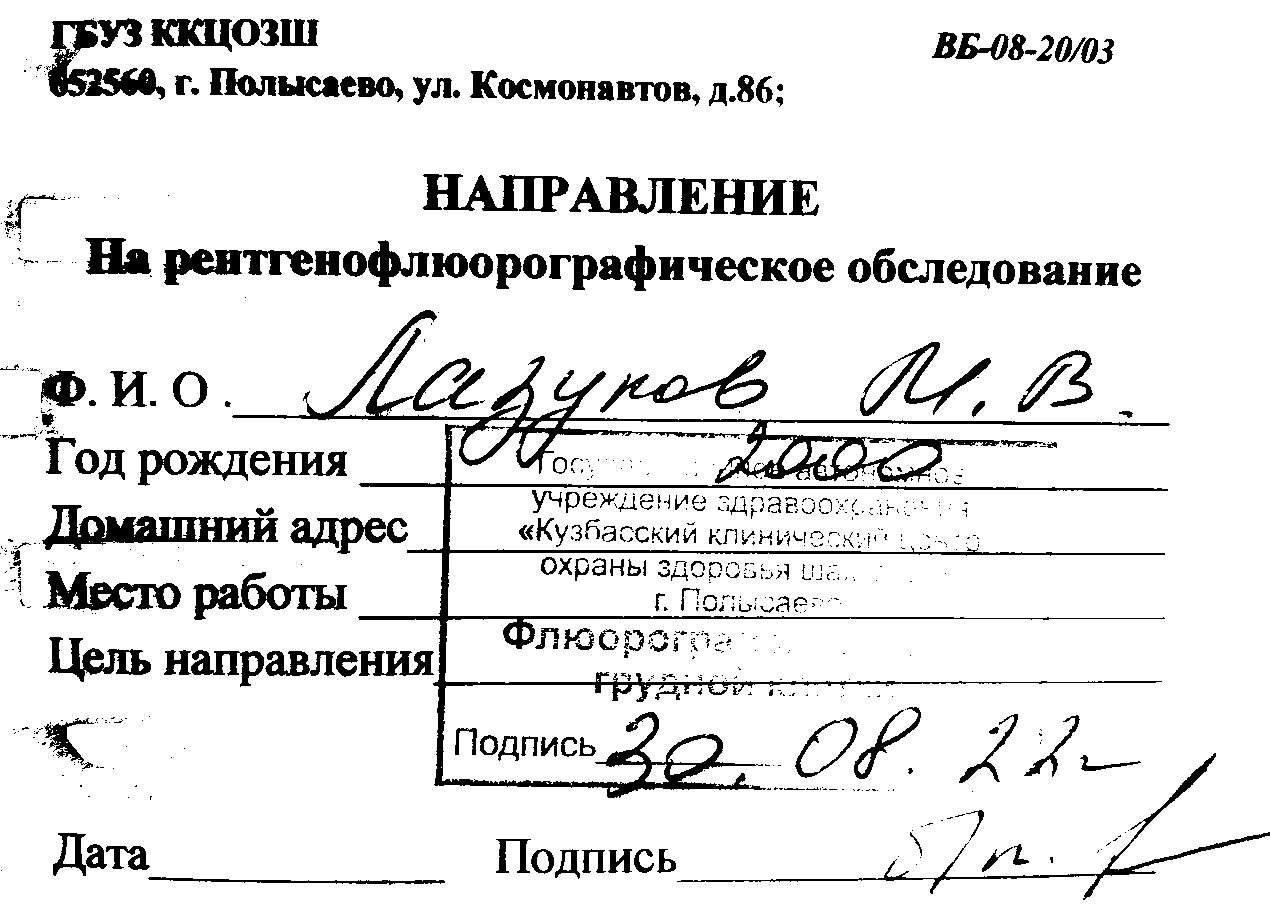 ГБУЗ ККЦОЗШ
ВБ-08-20/03
652560, г. Полысаево, ул. Космонавтов, д.86;
НАПРАВЛЕНИЕ
На рентгенофлюорографическое обследование
Ф. И. О. Лазуков М. В.
Год рождения 2000
Домашний адрес
Место работы
Цель направления
автономное
учреждение здравоохранения
«Кузбасский клинический центр
охраны здоровья
г. Полысаево
грудной
Подпись 30.08.22г
Дата Подпись